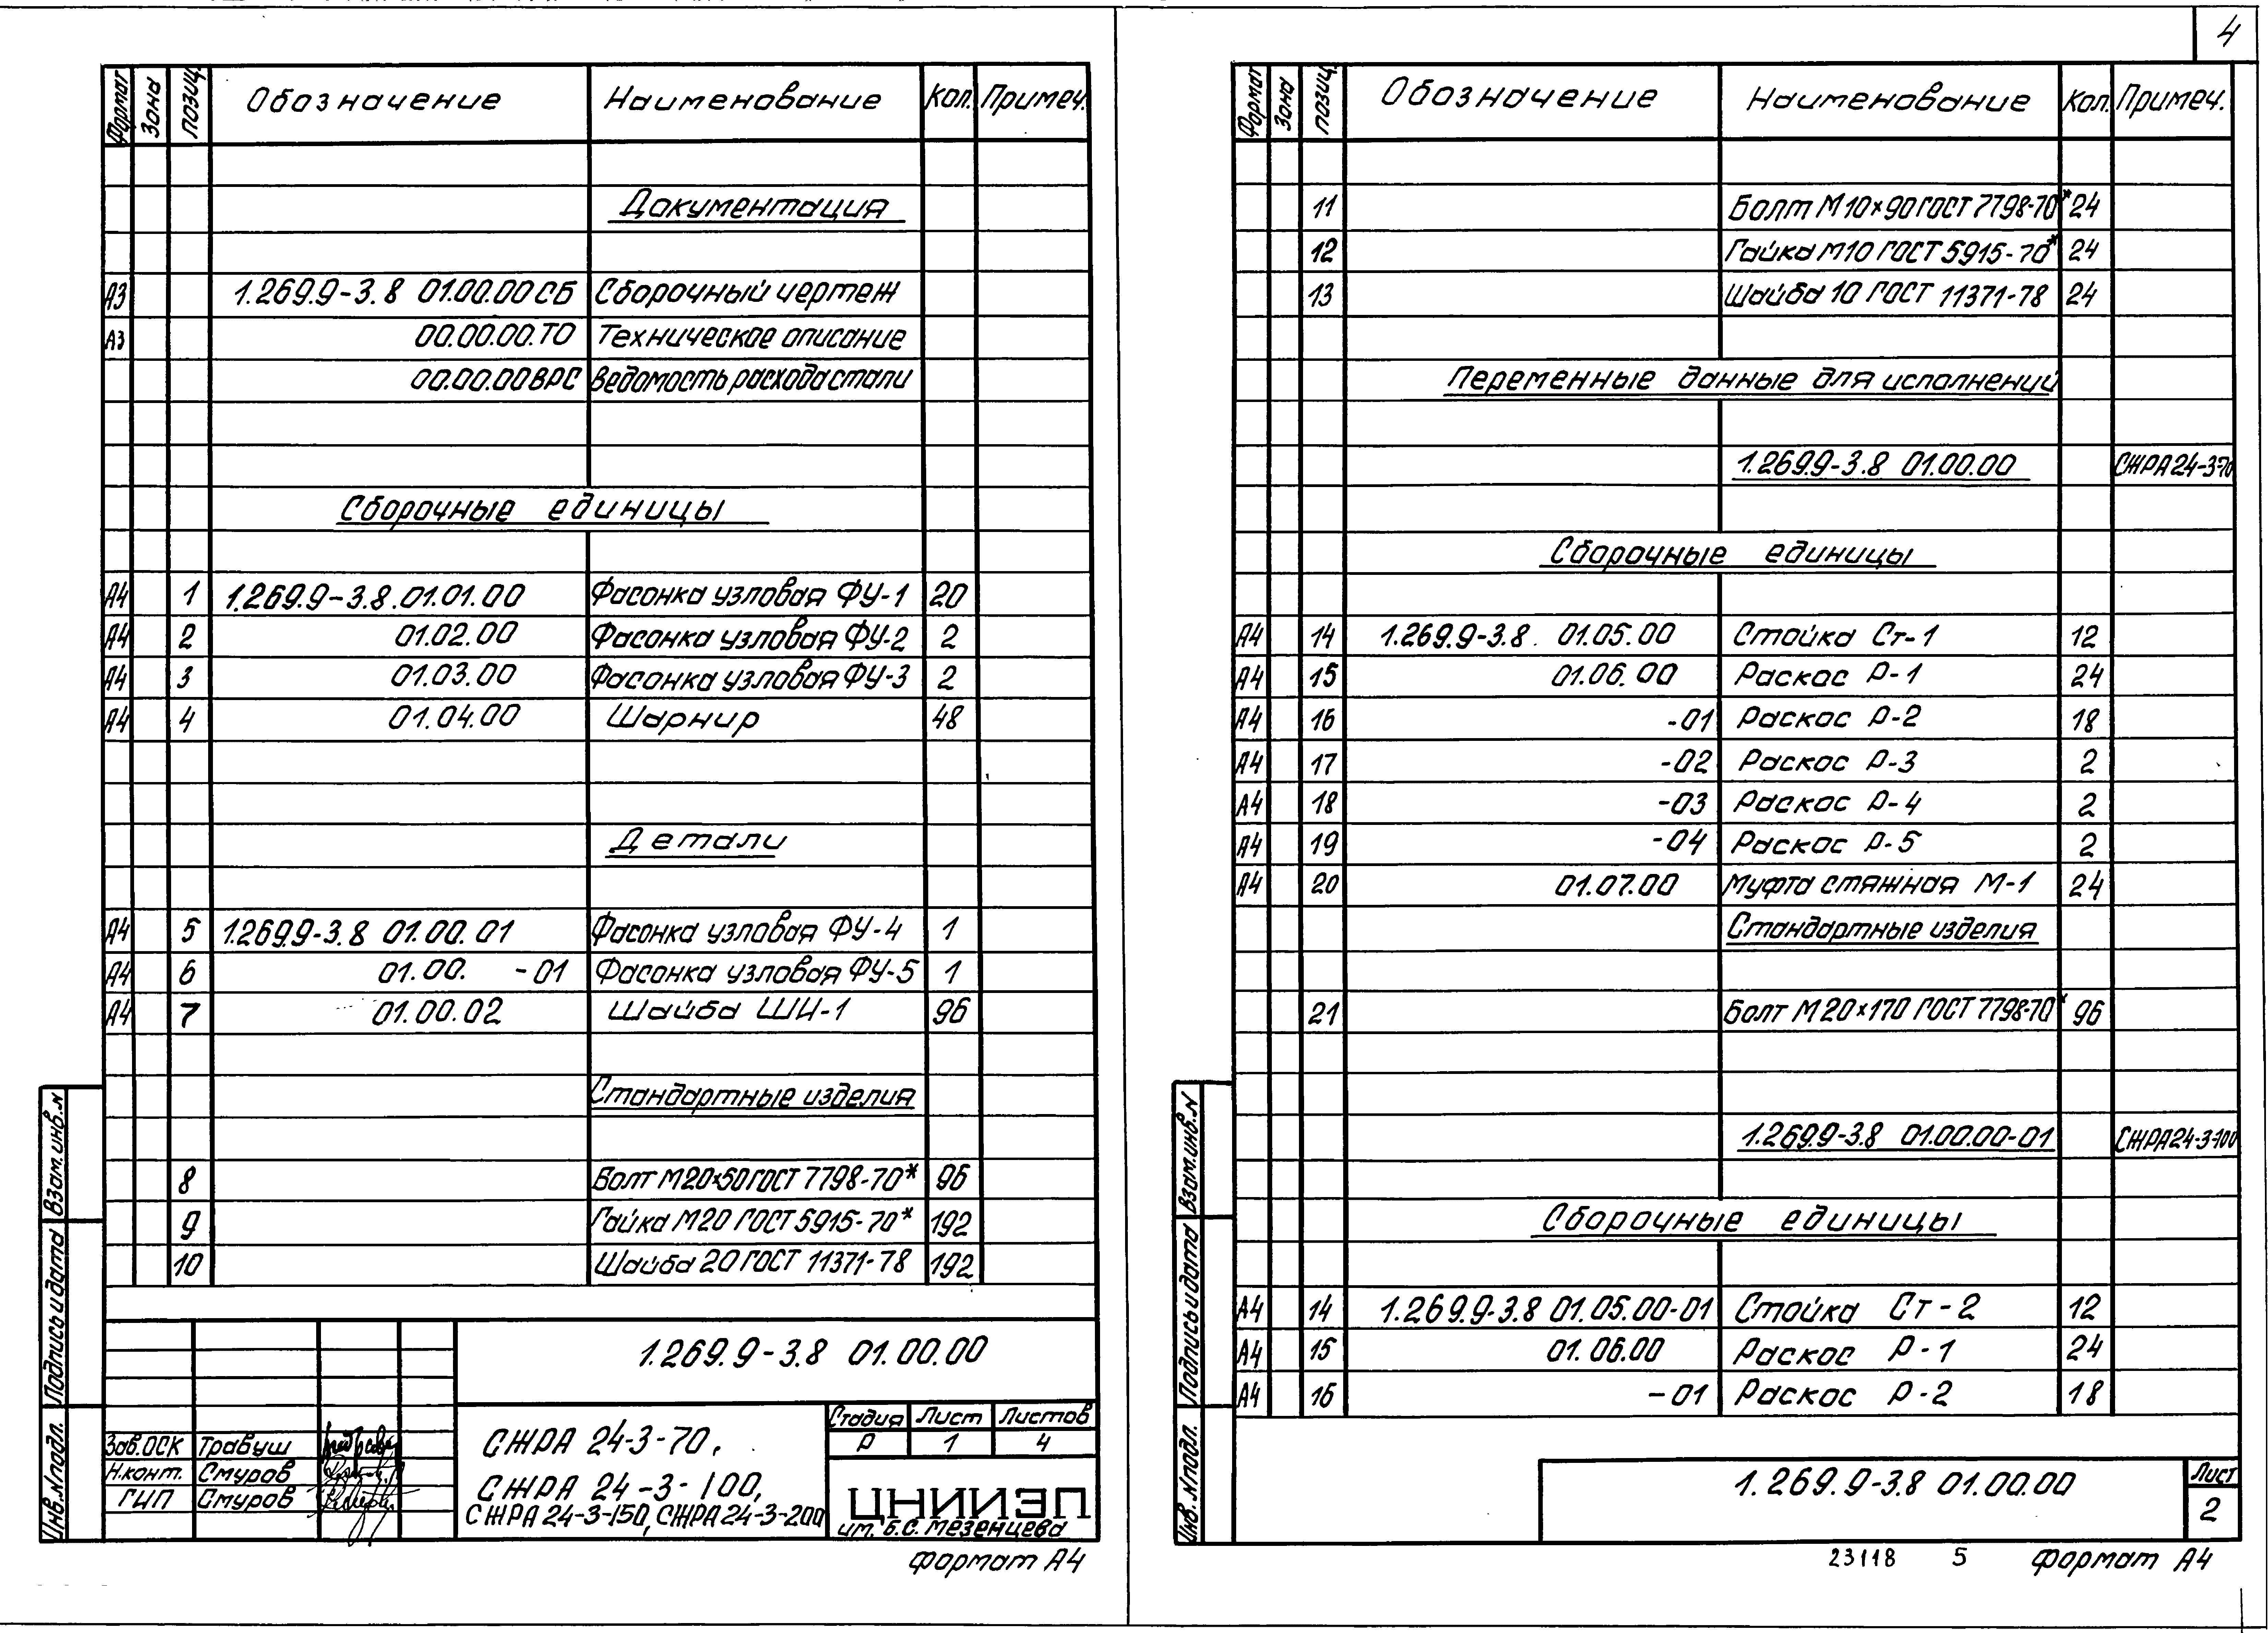 4
Формат Зона Позиц. Обозначение Наименование Кол. Примеч.
Документация
А3 1.269.9-3.8 01.00.00СБ Сборочный чертеж
А3 00.00.00.ТО Техническое описание
00.00.00ВРС Ведомость расхода стали
Сборочные единицы
А4 1 1.269.9-3.8.01.01.00 Фасонка узловая ФУ-1 20
А4 2 01.02.00 Фасонка узловая ФУ-2 2
А4 3 01.03.00 Фасонка узловая ФУ-3 2
А4 4 01.04.00 Шарнир 48
Детали
А4 5 1.269.9-3.8 01.00.01 Фасонка узловая ФУ-4 1
А4 6 01.00. -01 Фасонка узловая ФУ-5 1
А4 7 01.00.02 Шайба ШИ-1 96
Стандартные изделия
8 Болт М20×60 ГОСТ 7798-70* 96
9 Гайка М20 ГОСТ 5915-70* 192
10 Шайба 20 ГОСТ 11371-78 192
Взам.инв.N
Подпись и дата
Инв.Nподл.
1.269.9-3.8 01.00.00
Зав.ОСК Травуш
Н.конт. Смуров
ГИП Смуров
СЖРА 24-3-70,
СЖРА 24-3-100,
СЖРА 24-3-150, СЖРА 24-3-200
Стадия Лист Листов
Р 1 4
ЦНИИЭП
им. Б.С. Мезенцева
Формат А4
Формат Зона Позиц. Обозначение Наименование Кол. Примеч.
11 Болт М10×90 ГОСТ 7798-70* 24
12 Гайка М10 ГОСТ 5915-70* 24
13 Шайба 10 ГОСТ 11371-78 24
Переменные данные для исполнений
1.269.9-3.8 01.00.00 СЖРА24-3-70
Сборочные единицы
А4 14 1.269.9-3.8. 01.05.00 Стойка Ст-1 12
А4 15 01.06.00 Раскос Р-1 24
А4 16 -01 Раскос Р-2 18
А4 17 -02 Раскос Р-3 2
А4 18 -03 Раскос Р-4 2
А4 19 -04 Раскос Р-5 2
А4 20 01.07.00 Муфта стяжная М-1 24
Стандартные изделия
21 Болт М20×170 ГОСТ 7798-70* 96
1.269.9-3.8 01.00.00-01 СЖРА24-3-100
Сборочные единицы
А4 14 1.269.9-3.8 01.05.00-01 Стойка Ст-2 12
А4 15 01.06.00 Раскос Р-1 24
А4 16 -01 Раскос Р-2 18
Взам.инв.N
Подпись и дата
Инв.Nподл.
1.269.9-3.8 01.00.00
Лист
2
23118 5 Формат А4